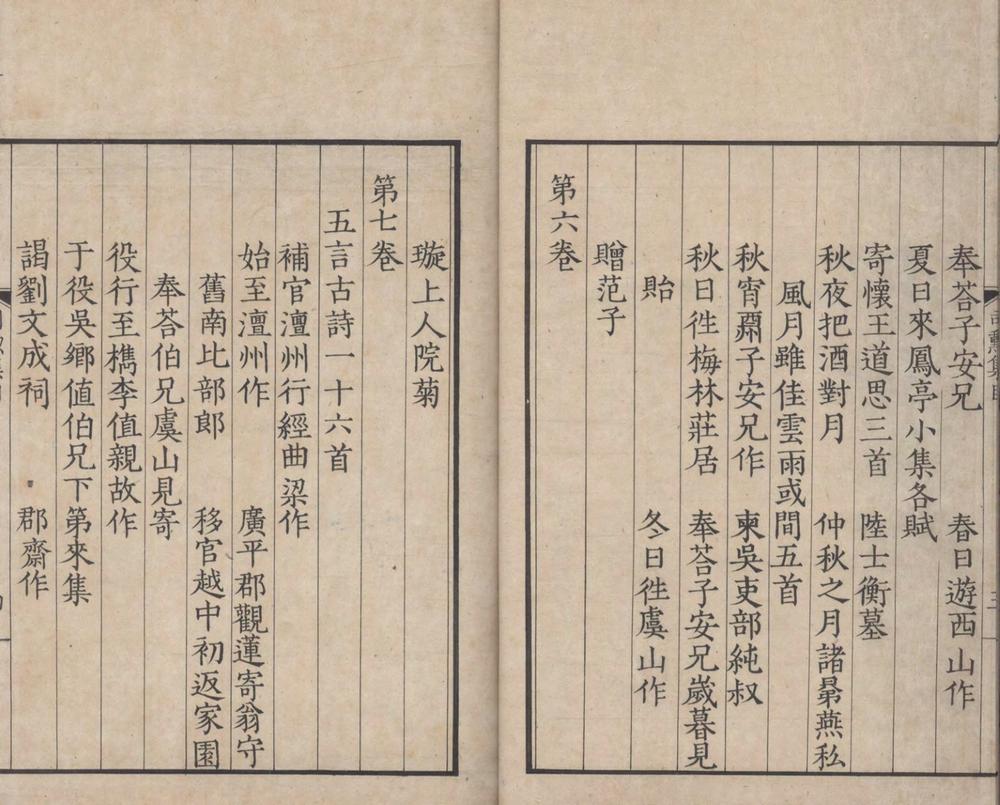 奉荅子安兄　春日遊西山作
夏日來鳳亭小集各賦
寄懷王道思三首　陸士衡墓
秋夜把酒對月　仲秋之月諸㫷燕私
風月雖佳雲雨或間五首
秋宵鬻子安兄作　柬吳吏部純叔
秋日徃梅林莊居　奉荅子安兄嵗暮見
貽　冬日徃虞山作
贈范子
第六卷
璇上人院菊
第七卷
五言古詩一十六首
補官澶州行經曲梁作
始至澶州作　廣平郡觀蓮寄翁守
舊南比部郎　移官越中初返家園
奉荅伯兄虞山見寄
役行至檇李值親故作
于役吳鄉值伯兄下第來集
謁劉文成祠　郡齋作